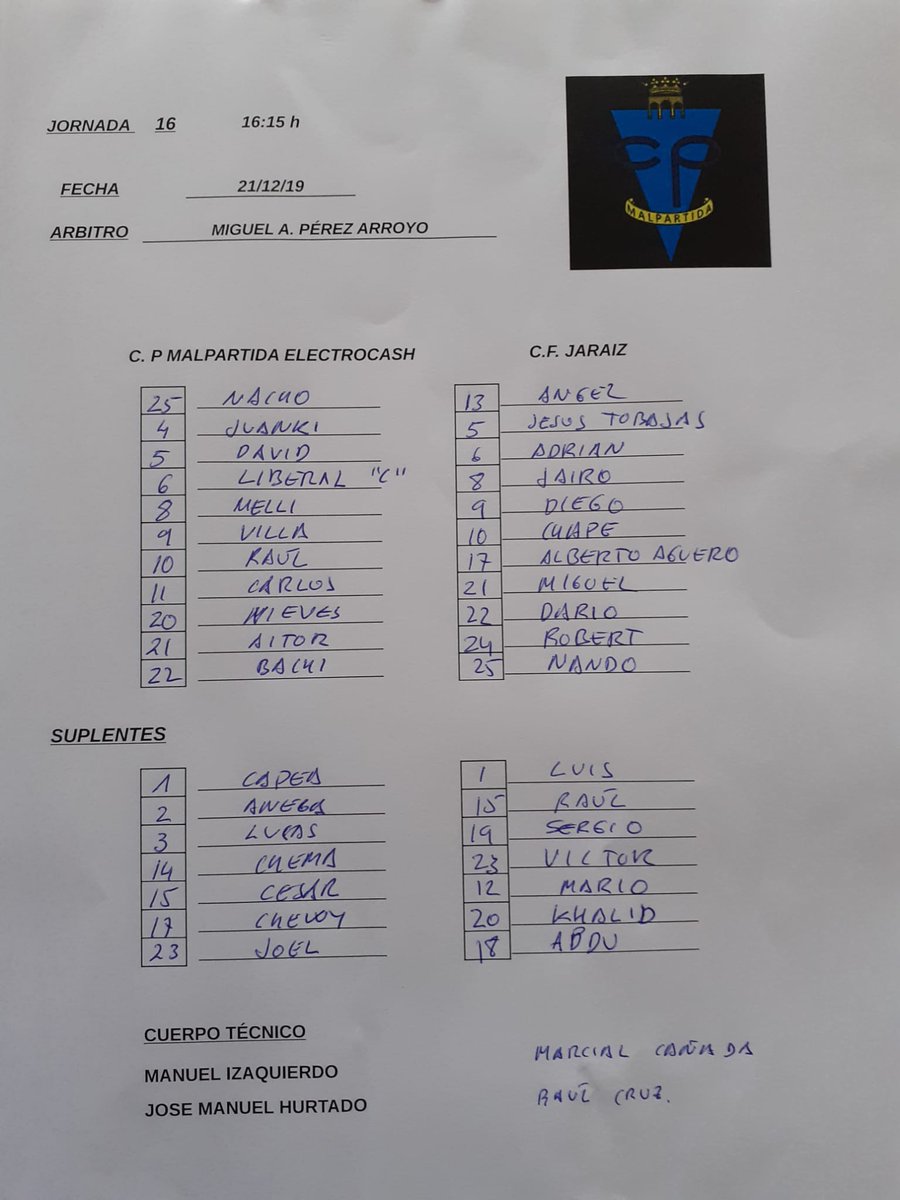 JORNADA 16 16:15 h
CP
MALPARTIDA
FECHA 21/12/19
ARBITRO MIGUEL A. PÉREZ ARROYO
C. P MALPARTIDA ELECTROCASH
25 NACHO
4 JUANKI
5 DAVID
6 LIBERAL "C"
8 MELLI
9 VILLA
10 RAÚL
11 CARLOS
20 NIEVES
21 AITOR
22 BACHI
C.F. JARAIZ
13 ANGEL
5 JESUS TOBAJAS
6 ADRIAN
8 JAIRO
9 DIEGO
10 CHAPE
17 ALBERTO AGUERO
21 MIGUEL
22 DARIO
24 ROBERT
25 NANDO
SUPLENTES
1 CAPEA
2
3 LUCAS
14 CHEMA
15 CESAR
17 CHEVOY
23 JOEL
1 LUIS
15 RAÚL
19 SERGIO
23 VICTOR
12 MARIO
20 KHALID
18 ABDU
CUERPO TÉCNICO
MANUEL IZAQUIERDO
JOSE MANUEL HURTADO
MARCIAL CAÑADA
RAÚL CRUZ.